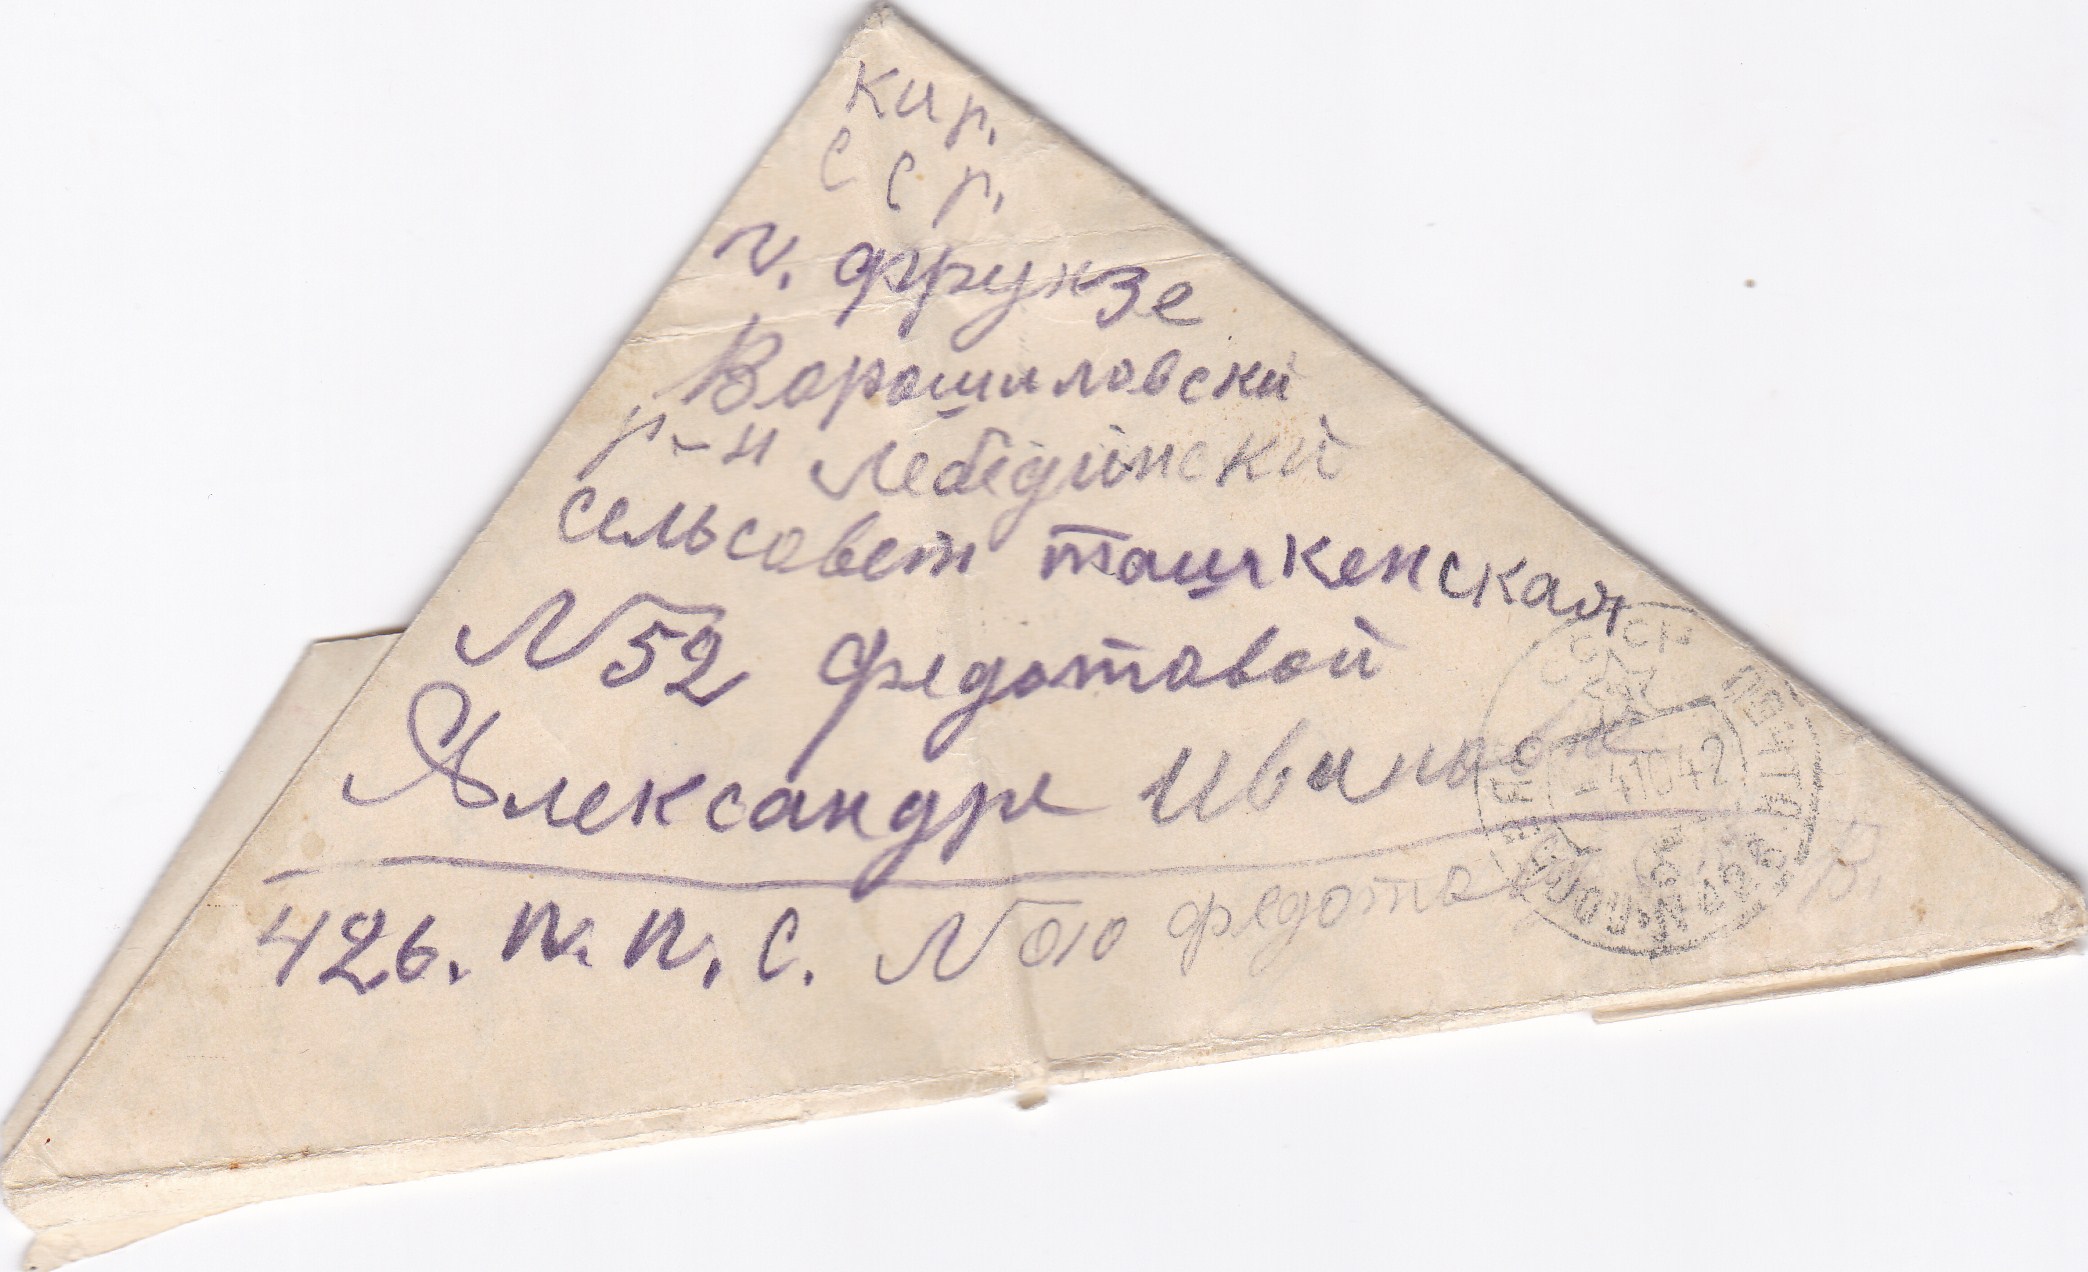 Кир.
ССр.
г. фрунзе
Ворошиловски
р-н Лебедински
сельсовет ташкенская
N 52 федотовой
Александре Ивановн
426. п. п. с. N 010 федото В.
СССР
4 10 42